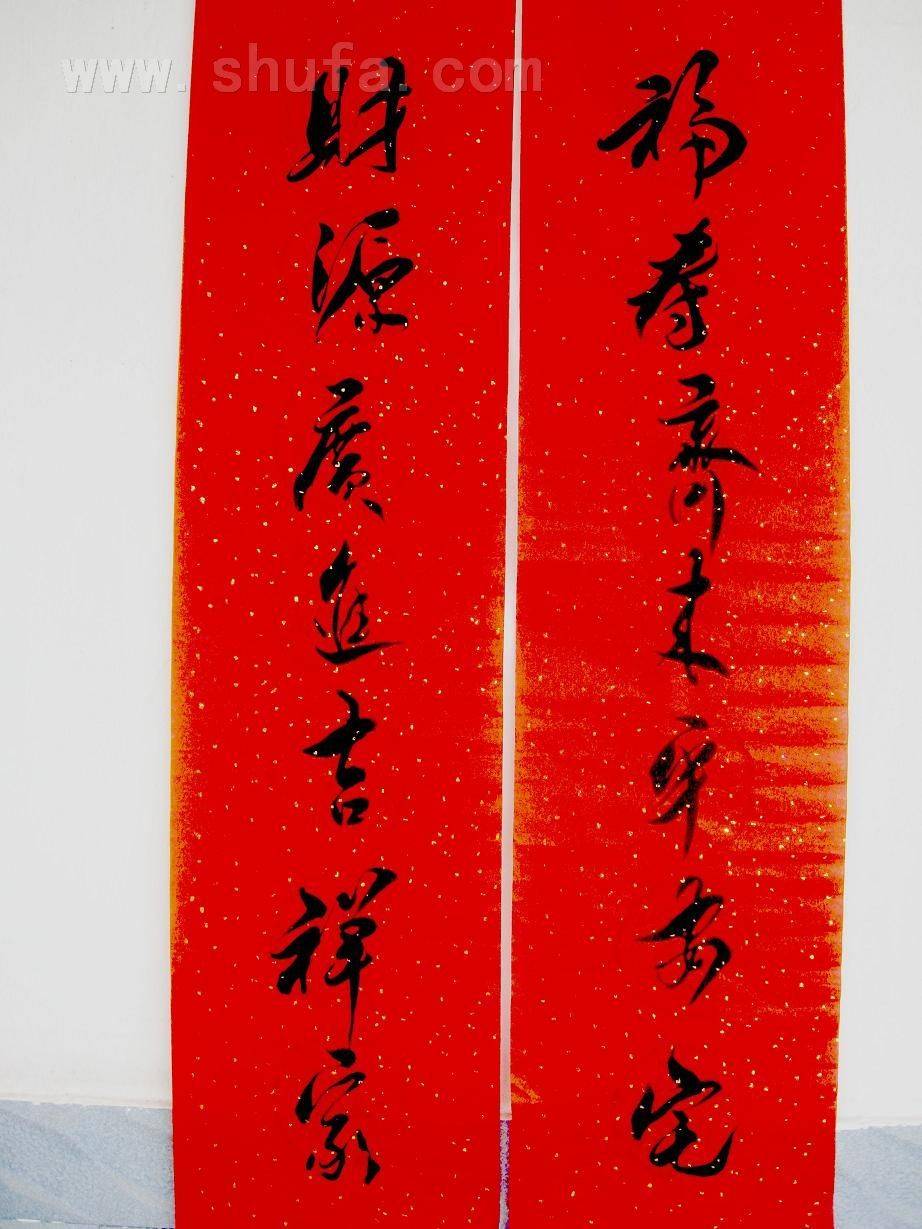 www.shufa.com
福寿齐来平安宅
财源广进吉祥家